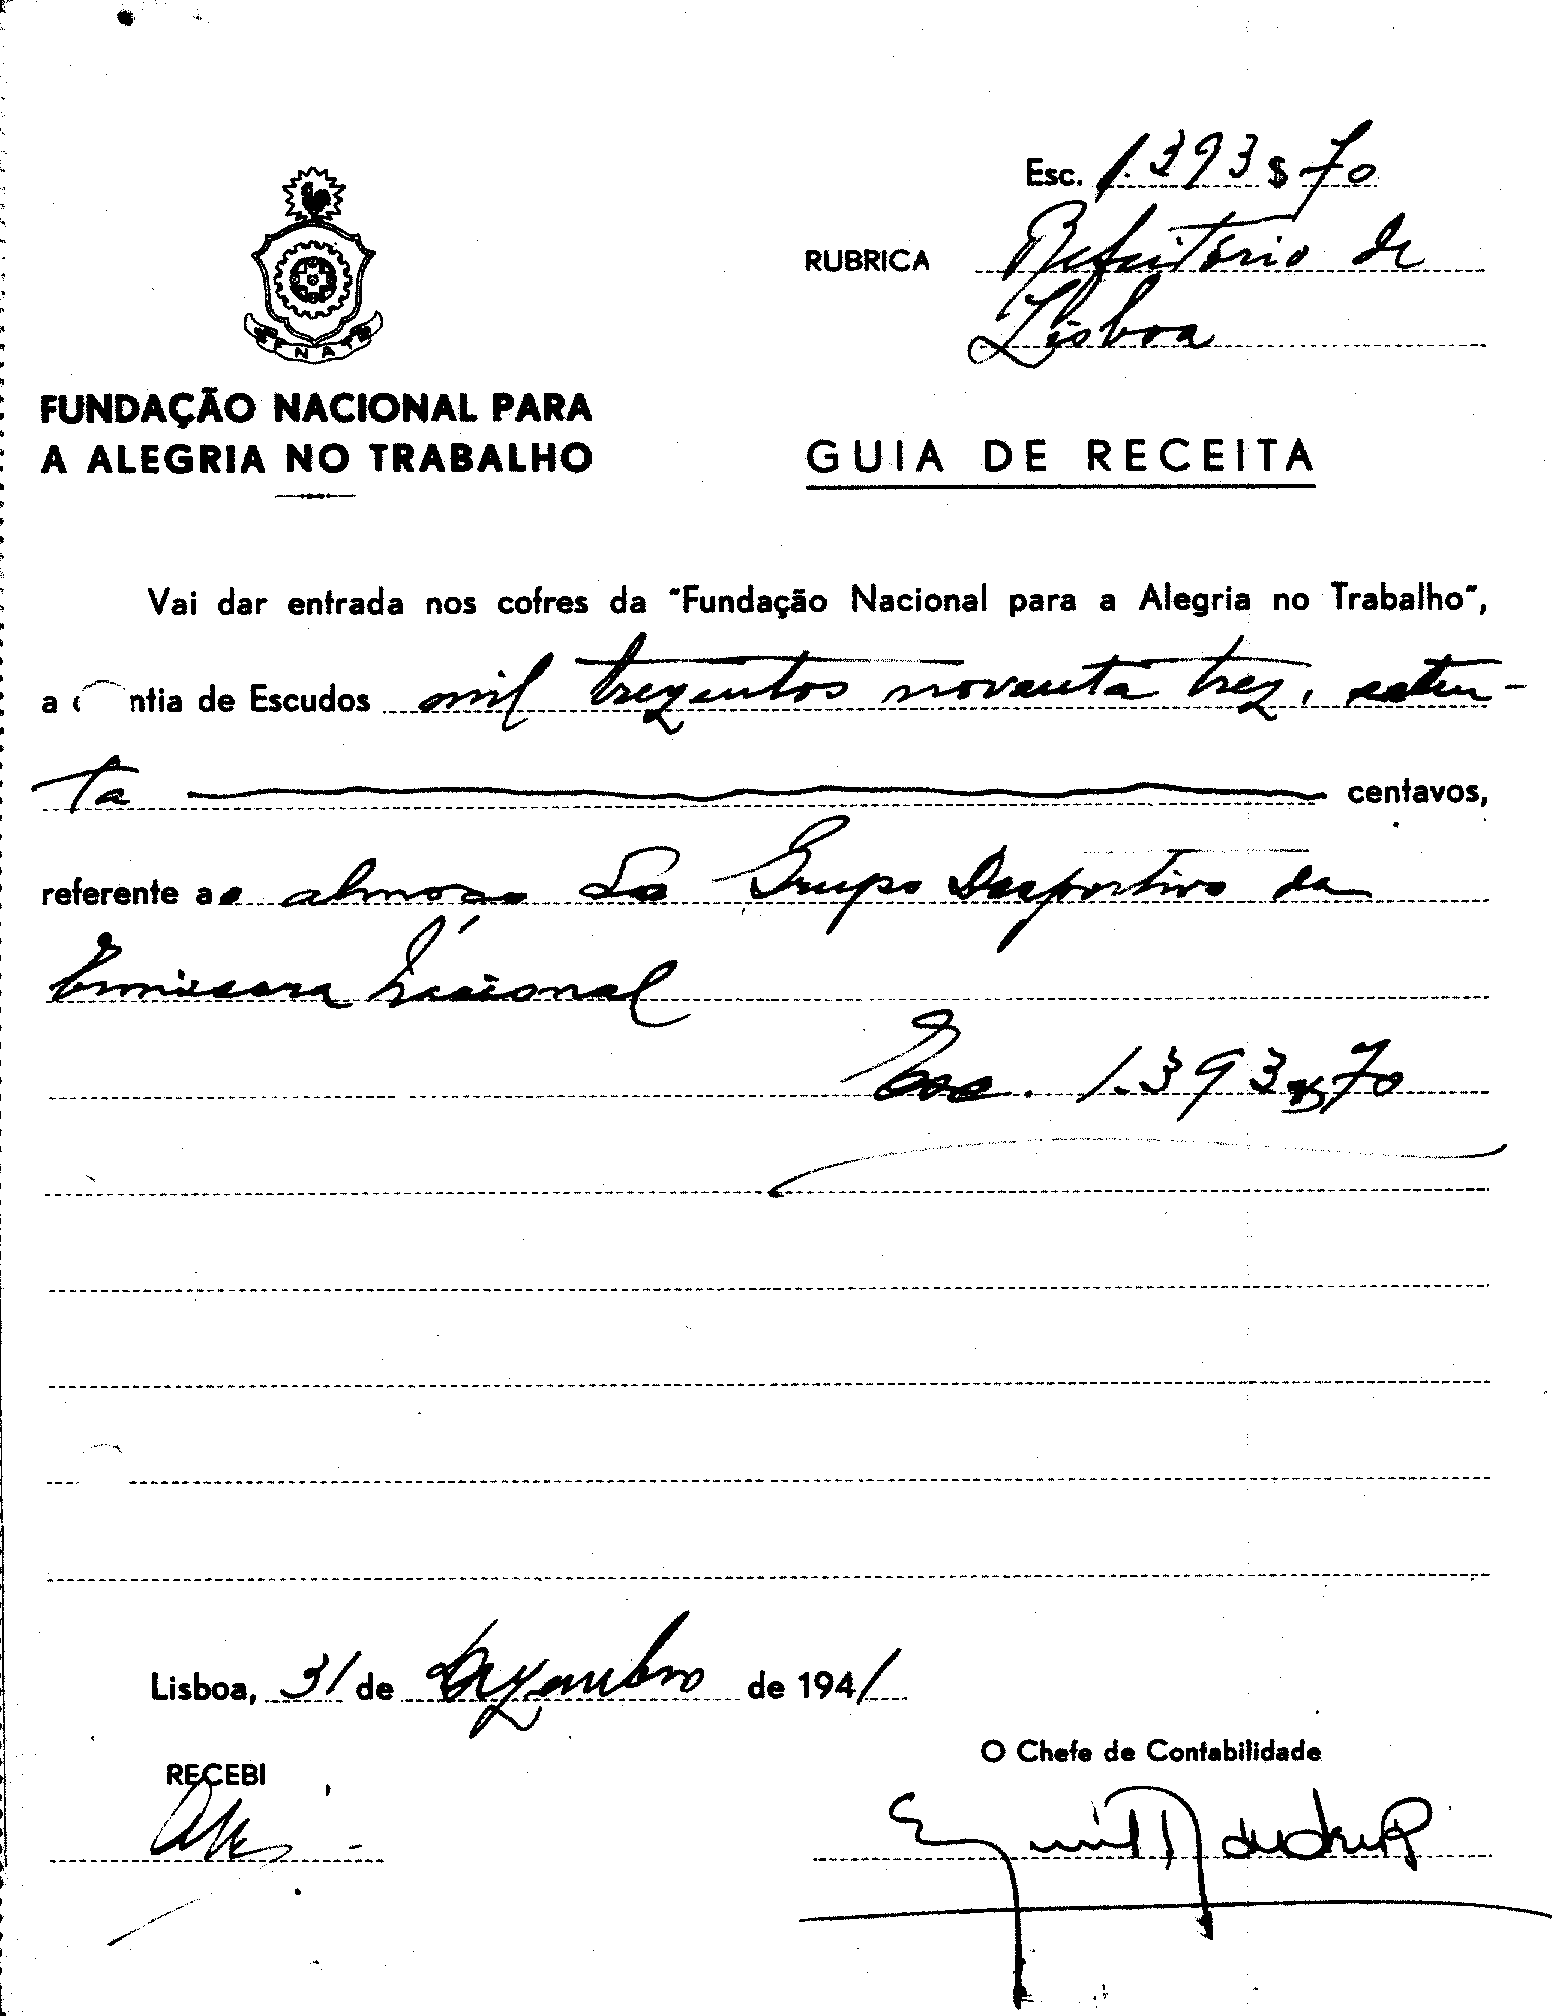 Esc. 1.393$70
RUBRICA Refeitório de
Lisboa
FNAT
FUNDAÇÃO NACIONAL PARA
A ALEGRIA NO TRABALHO
GUIA DE RECEITA
Vai dar entrada nos cofres da "Fundação Nacional para a Alegria no Trabalho",
a ntia de Escudos mil trezentos novanta trez, seten-
ta centavos,
referente ao almoço do Grupo Desportivo da
Emissora Nacional
Esc. 1.393$70
Lisboa, 31 de Dezembro de 1941
RECEBI
O Chefe de Contabilidade